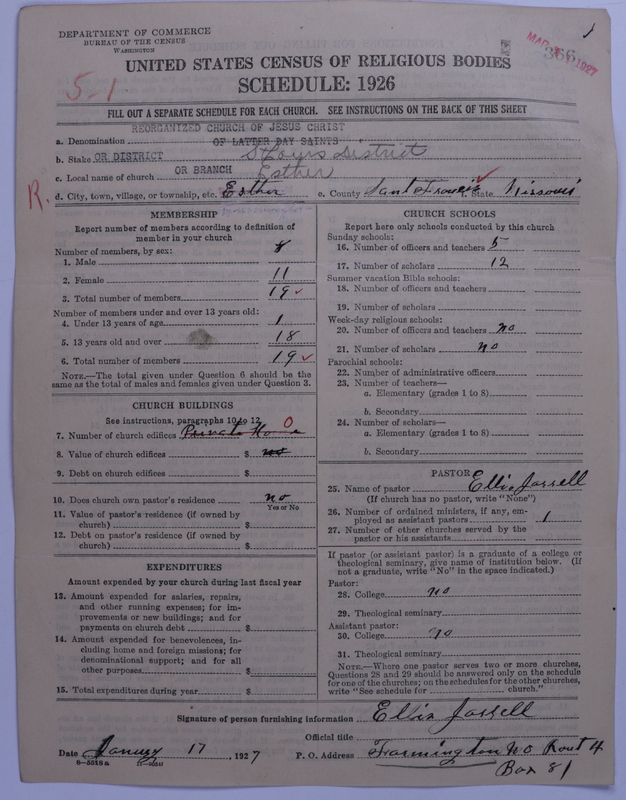 DEPARTMENT OF COMMERCE
BUREAU OF THE CENSUS
WASHINGTON
366
MAR 1927
5-1
UNITED STATES CENSUS OF RELIGIOUS BODIES
SCHEDULE: 1926
FILL OUT A SEPARATE SCHEDULE FOR EACH CHURCH. SEE INSTRUCTIONS ON THE BACK OF THIS SHEET
REORGANIZED CHURCH OF JESUS CHRIST
a. Denomination OF LATTER DAY SAINTS
b. Stake OR DISTRICT St Louis District
c. Local name of church OR BRANCH Esther
R. d. City, town, village, or township, etc. Esther e. County Sant Francis f. State Missouri
MEMBERSHIP
Report number of members according to definition of
member in your church
Number of members, by sex:
1. Male 8
2. Female 11
3. Total number of members 19
Number of members under and over 13 years old:
4. Under 13 years of age 1
5. 13 years old and over 18
6. Total number of members 19
NOTE.—The total given under Question 6 should be the
same as the total of males and females given under Question 3.
CHURCH BUILDINGS
See instructions, paragraphs 10 to 12
7. Number of church edifices Private Home 0
8. Value of church edifices $ no
9. Debt on church edifices $
10. Does church own pastor's residence no
Yes or No
11. Value of pastor's residence (if owned by
church) $
12. Debt on pastor's residence (if owned by
church) $
EXPENDITURES
Amount expended by your church during last fiscal year
13. Amount expended for salaries, repairs,
and other running expenses; for im-
provements or new buildings; and for
payments on church debt $
14. Amount expended for benevolences, in-
cluding home and foreign missions; for
denominational support; and for all
other purposes $
15. Total expenditures during year $
CHURCH SCHOOLS
Report here only schools conducted by this church
Sunday schools:
16. Number of officers and teachers 5
17. Number of scholars 12
Summer vacation Bible schools:
18. Number of officers and teachers
19. Number of scholars
Week-day religious schools:
20. Number of officers and teachers no
21. Number of scholars no
Parochial schools:
22. Number of administrative officers
23. Number of teachers—
a. Elementary (grades 1 to 8)
b. Secondary
24. Number of scholars—
a. Elementary (grades 1 to 8)
b. Secondary
PASTOR
25. Name of pastor Ellis Jarrell
(If church has no pastor, write "None")
26. Number of ordained ministers, if any, em-
ployed as assistant pastors 1
27. Number of other churches served by the
pastor or his assistants
If pastor (or assistant pastor) is a graduate of a college or
theological seminary, give name of institution below. (If
not a graduate, write "No" in the space indicated.)
Pastor:
28. College no
29. Theological seminary
Assistant pastor:
30. College no
31. Theological seminary
NOTE.—Where one pastor serves two or more churches,
Questions 28 and 29 should be answered only on the schedule
for one of the churches; on the schedules for the other churches,
write "See schedule for church."
Signature of person furnishing information Ellis Jarrell
Official title
Date January 17, 1927 P. O. Address Farmington Mo Rout 4
Box 81